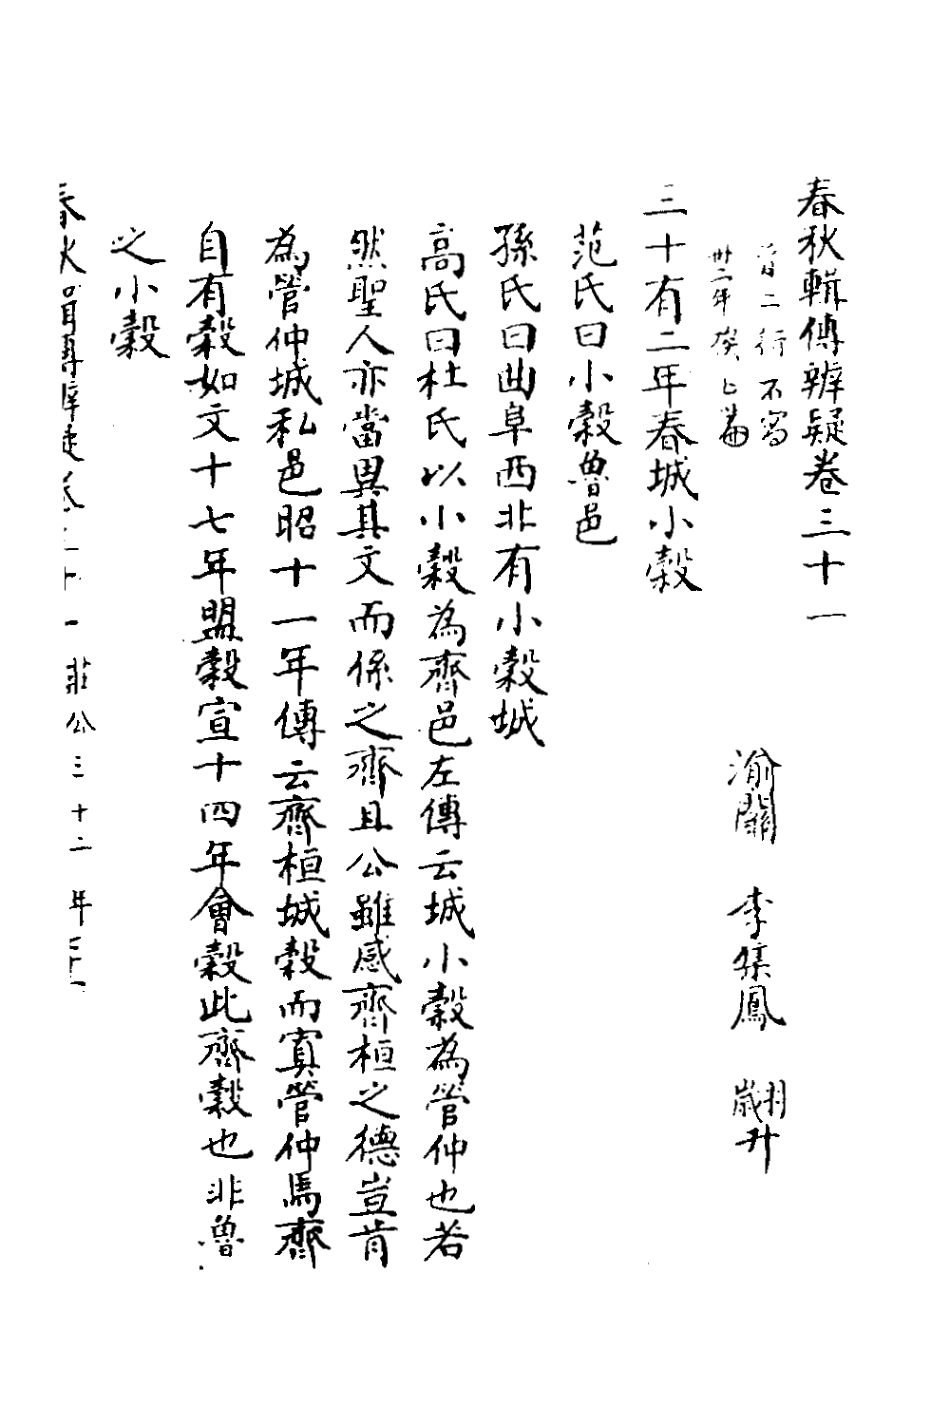 春秋輯傳辨疑卷三十一
首二行不寫
卅二年 
渝關 李集鳳 翽升
三十有二年春城小穀
范氏曰小穀魯邑
孫氏曰曲阜西北有小穀城
高氏曰杜氏以小穀為齊邑左傳云城小穀為管仲也若
然聖人亦當異其文而係之齊且公雖感齊桓之德豈肯
為管仲城私邑昭十一年傳云齊桓城穀而寘管仲馬齊
自有穀如文十七年盟穀宣十四年會穀此齊穀也非魯
之小穀
春秋輯傳辨疑卷三十一 莊公三十二年 三十一